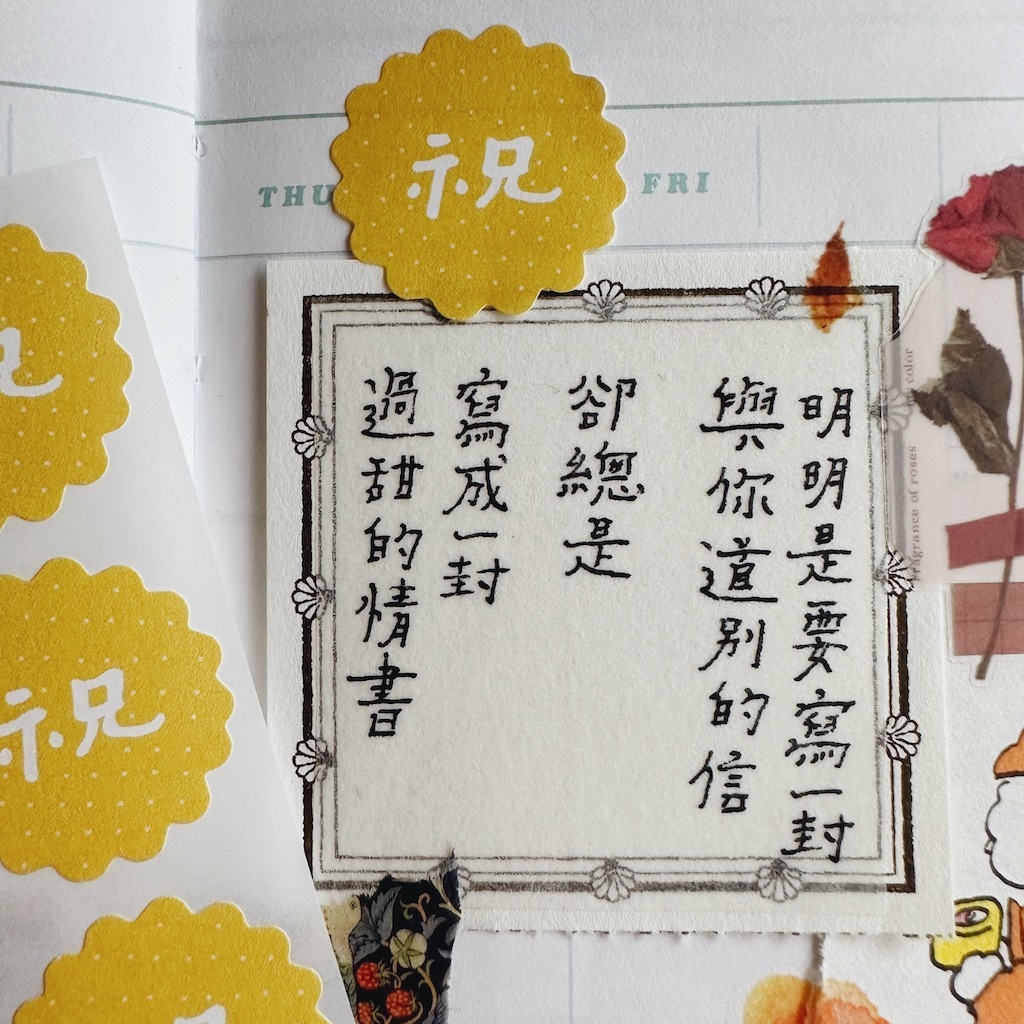 祝
THU
FRI
明明是要寫一封
與你道別的信
卻總是
寫成一封
過甜的情書
祝
fragrance of roses
color